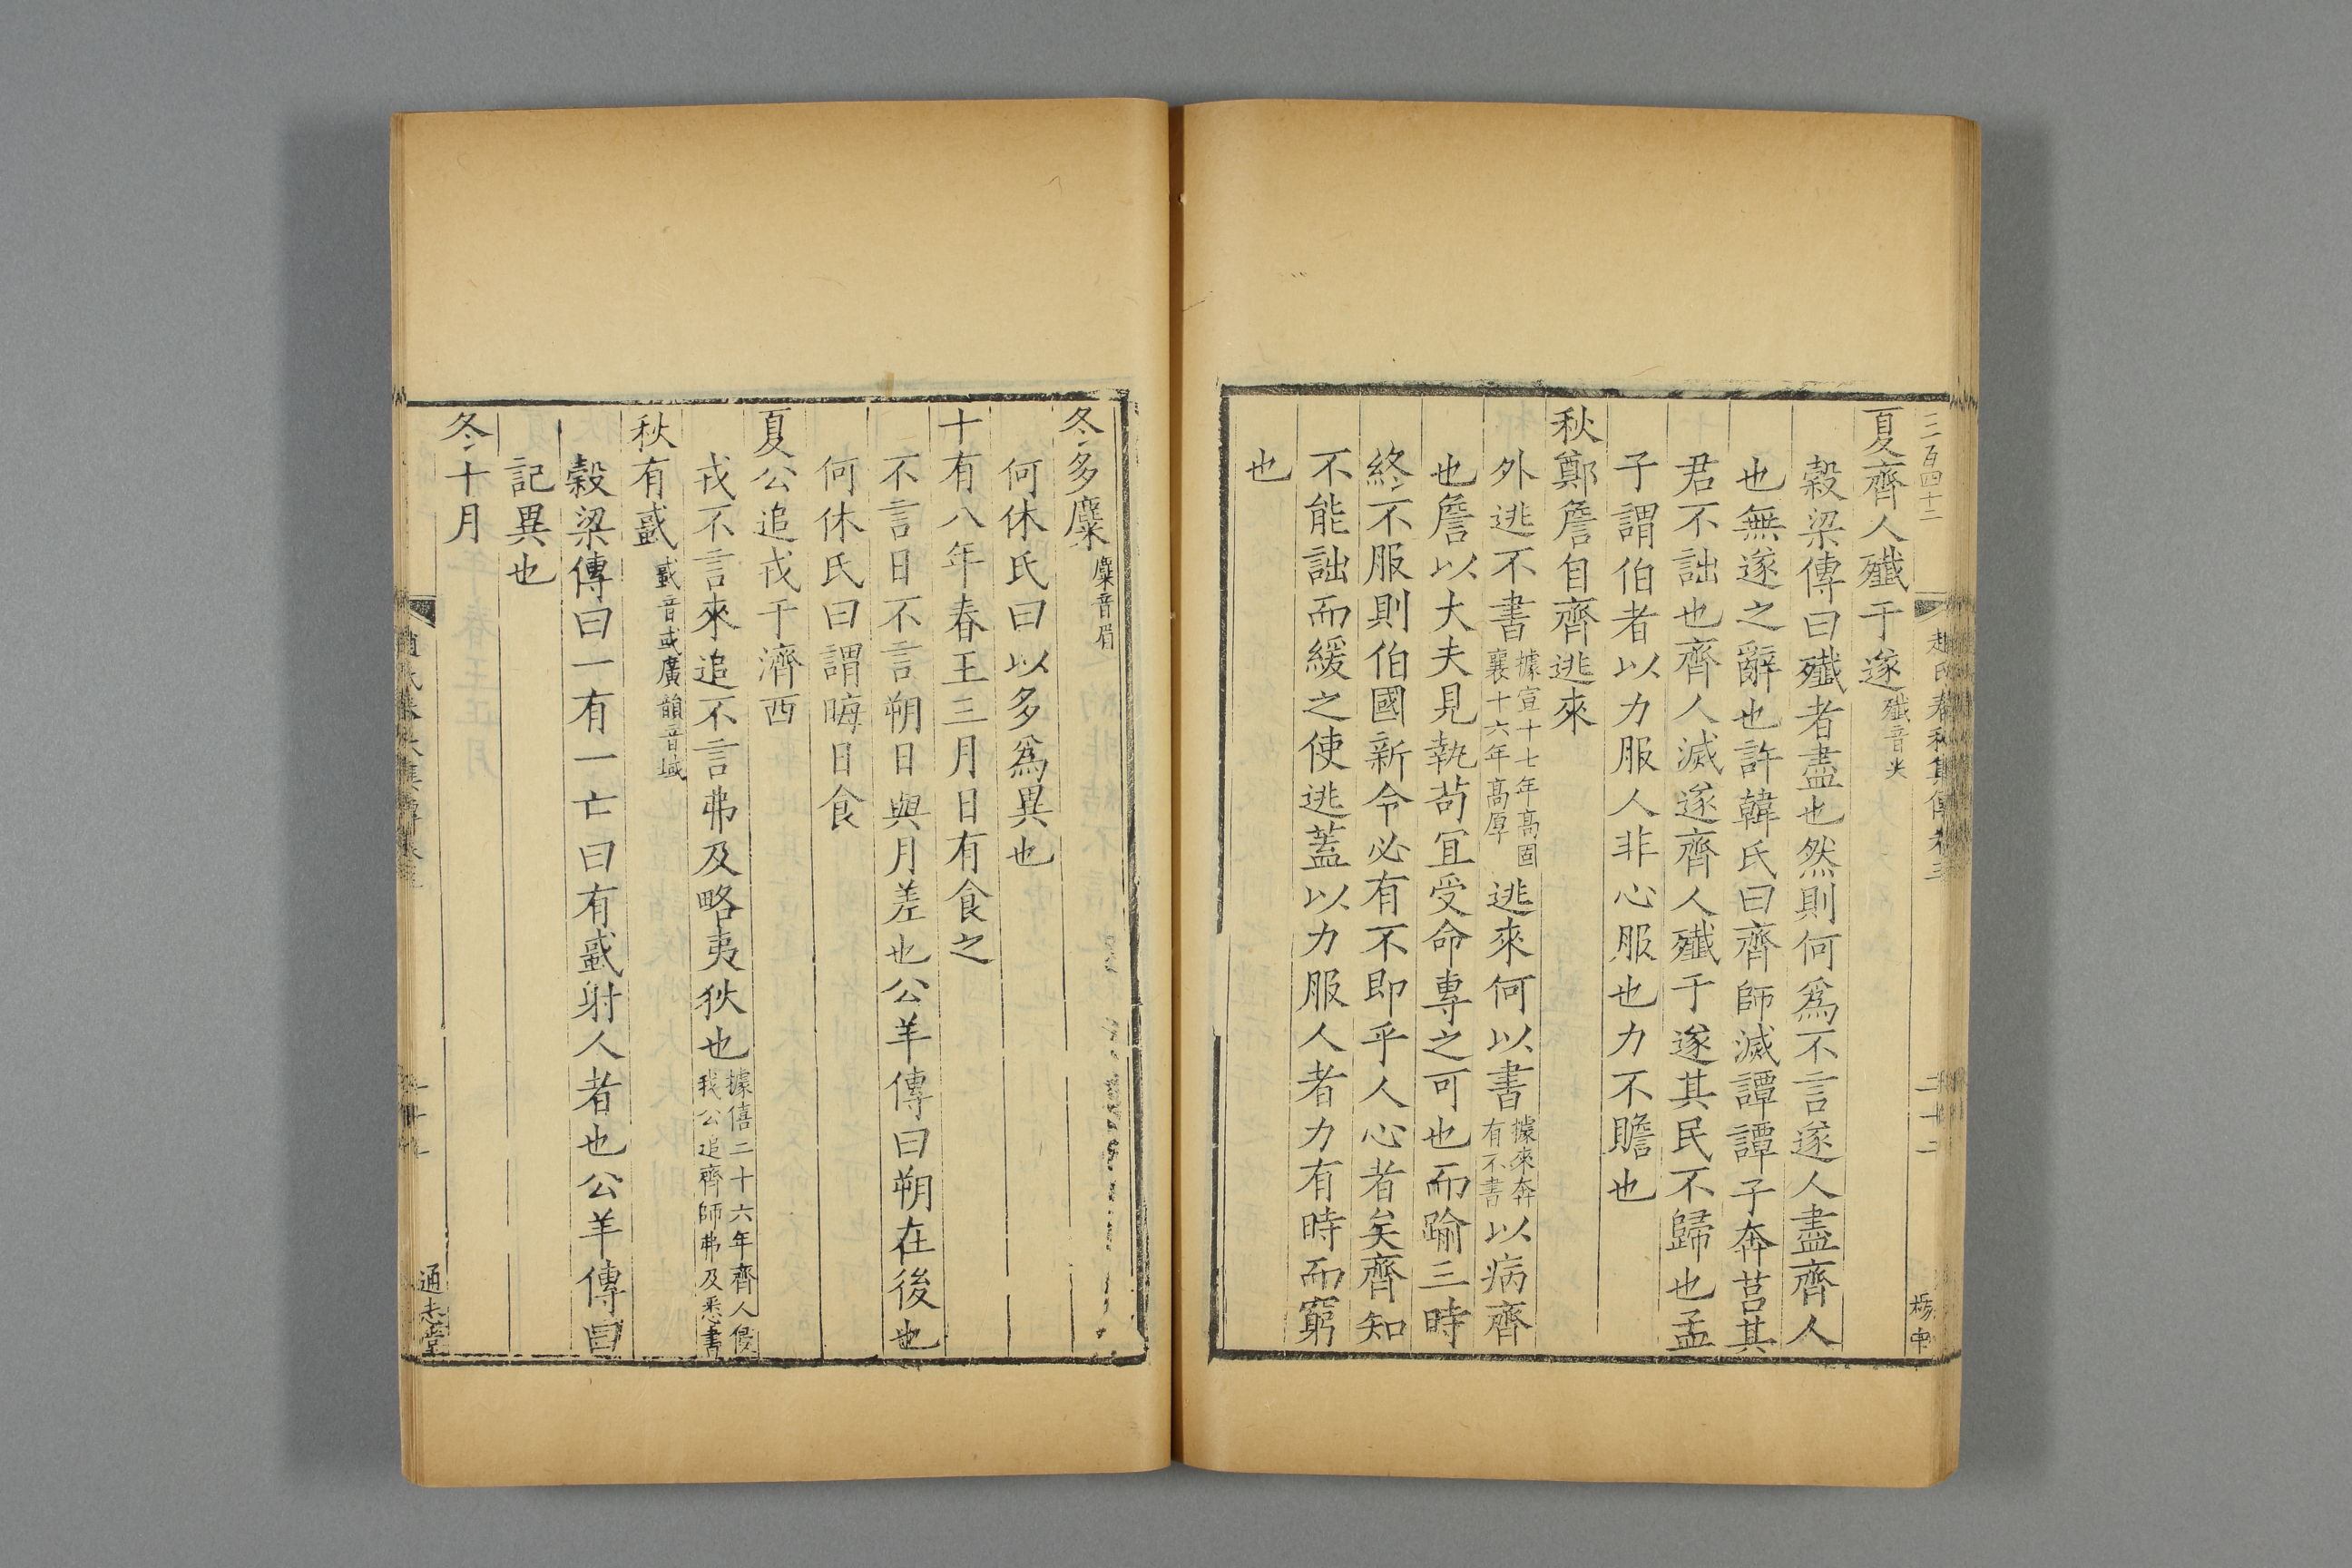 三百四十二
趙氏春秋集傳卷三
二十二
夏齊人殱于遂殱音尖
穀梁傳曰殱者盡也然則何爲不言遂人盡齊人
也無遂之辭也許韓氏曰齊師滅譚譚子奔莒其
君不詘也齊人滅遂齊人殱于遂其民不歸也孟
子謂伯者以力服人非心服也力不贍也
秋鄭詹自齊逃來
外逃不書據宣十七年高固襄十六年高厚逃來何以書據來奔有不書以病齊
也詹以大夫見執苟宜受命專之可也而踰三時
終不服則伯國新令必有不即乎人心者矣齊知
不能詘而緩之使逃蓋以力服人者力有時而窮
也
冬多麋麋音眉
何休氏曰以多爲異也
十有八年春王三月日有食之
不言日不言朔日與月差也公羊傳曰朔在後也
何休氏曰謂晦日食
夏公追戎于濟西
戎不言來追不言弗及略夷狄也據僖二十六年齊人侵我公追齊師弗及悉書
秋有蜮蜮音或廣韻音域
穀梁傳曰一有一亡曰有蜮射人者也公羊傳曰
記異也
冬十月
通志堂